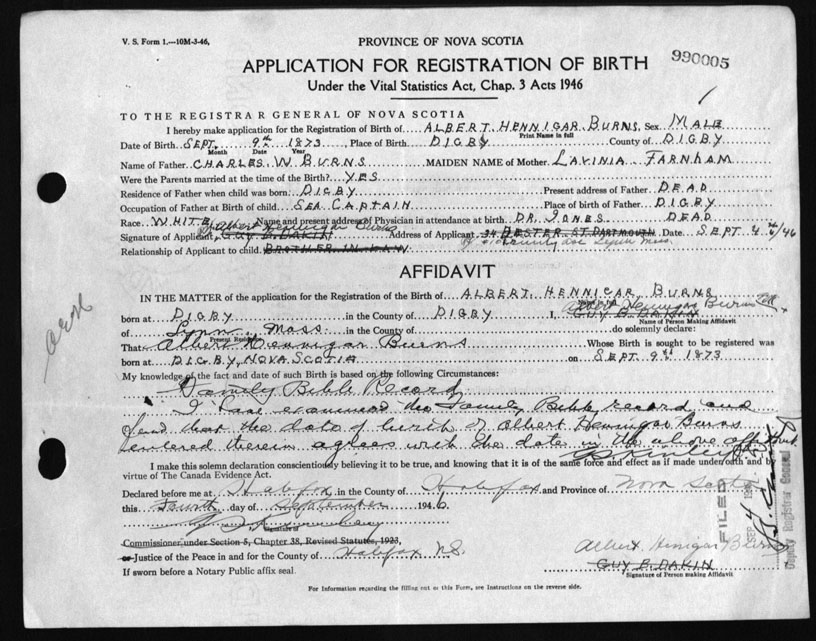 V. S. Form 1.—10M-3-46.
PROVINCE OF NOVA SCOTIA
990005
APPLICATION FOR REGISTRATION OF BIRTH
Under the Vital Statistics Act, Chap. 3 Acts 1946
TO THE REGISTRAR GENERAL OF NOVA SCOTIA
I hereby make application for the Registration of Birth of ALBERT HENNIGAR BURNS, Sex MALE
Print Name in full
Date of Birth SEPT. 9th 1873, Place of Birth DIGBY County of DIGBY
Month Date Year
Name of Father CHARLES W. BURNS MAIDEN NAME of Mother LAVINIA FARNHAM
Were the Parents married at the time of the Birth? YES
Residence of Father when child was born DIGBY Present address of Father DEAD
Occupation of Father at Birth of child SEA CAPTAIN Place of birth of Father DIGBY
Race WHITE Name and present address of Physician in attendance at birth DR. JONES DEAD
Albert Hennigar Burns
Signature of Applicant GUY B. DAKIN Address of Applicant 34 HESTER ST. DARTMOUTH Date SEPT 4th/46
Lynn Mass.
Relationship of Applicant to child BROTHER IN LAW
AFFIDAVIT
IN THE MATTER of the application for the Registration of the Birth of ALBERT HENNIGAR BURNS
Albert Hennigar Burns
born at DIGBY in the County of DIGBY I, GUY B. DAKIN
Name of Person Making Affidavit
of Lynn, Mass. in the County of do solemnly declare:
Present Residence
That Albert Hennigar Burns Whose Birth is sought to be registered was
born at DIGBY, NOVA SCOTIA on SEPT 9th 1873
My knowledge of the fact and date of such Birth is based on the following Circumstances:
Family Bible Record
I have examined the Family Bible record and
find that the date of birth of Albert Hennigar Burns
entered therein agrees with the date in the above affidavit
I make this solemn declaration conscientiously believing it to be true, and knowing that it is of the same force and effect as if made under oath and by
virtue of The Canada Evidence Act.
Declared before me at Halifax in the County of Halifax and Province of Nova Scotia
this Fourth day of September 1946
Signature of
Commissioner under Section 5, Chapter 38, Revised Statutes, 1923,
or Justice of the Peace in and for the County of Halifax N.S.
If sworn before a Notary Public affix seal
Albert Hennigar Burns
GUY B. DAKIN
Signature of Person making Affidavit
FILED
SEP 4
Deputy Registrar General
For Information regarding the filling out of this Form, see Instructions on the reverse side.